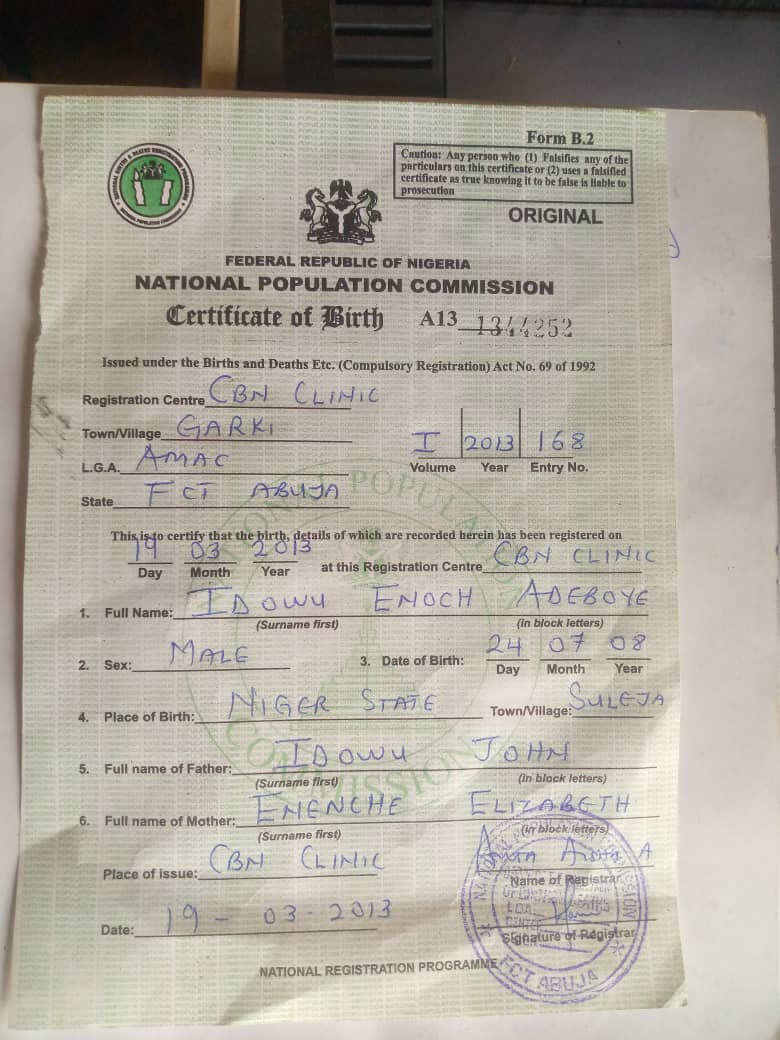 Form B.2
Caution: Any person who (1) Falsifies any of the
particulars on this certificate or (2) uses a falsified
certificate as true knowing it to be false is liable to
prosecution
ORIGINAL
FEDERAL REPUBLIC OF NIGERIA
NATIONAL POPULATION COMMISSION
Certificate of Birth A13 1344252
Issued under the Births and Deaths Etc. (Compulsory Registration) Act No. 69 of 1992
Registration Centre CBN CLINIC
Town/Village GARKI
I 2013 168
Volume Year Entry No.
L.G.A. AMAC
State FCT ABUJA
This is to certify that the birth, details of which are recorded herein has been registered on
19 03 2013 at this Registration Centre CBN CLINIC
Day Month Year
1. Full Name: IDOWU ENOCH ADEBOYE
(Surname first) (in block letters)
2. Sex: MALE 3. Date of Birth: 24 07 08
Day Month Year
4. Place of Birth: NIGER STATE Town/Village: SULEJA
5. Full name of Father: IDOWU JOHN
(Surname first) (in block letters)
6. Full name of Mother: ENENCHE ELIZABETH
(Surname first) (in block letters)
Place of issue: CBN CLINIC
Name of Registrar
Date: 19 - 03 - 2013
Signature of Registrar
NATIONAL REGISTRATION PROGRAMME
NATIONAL POPULATION COMMISSION
FCT ABUJA